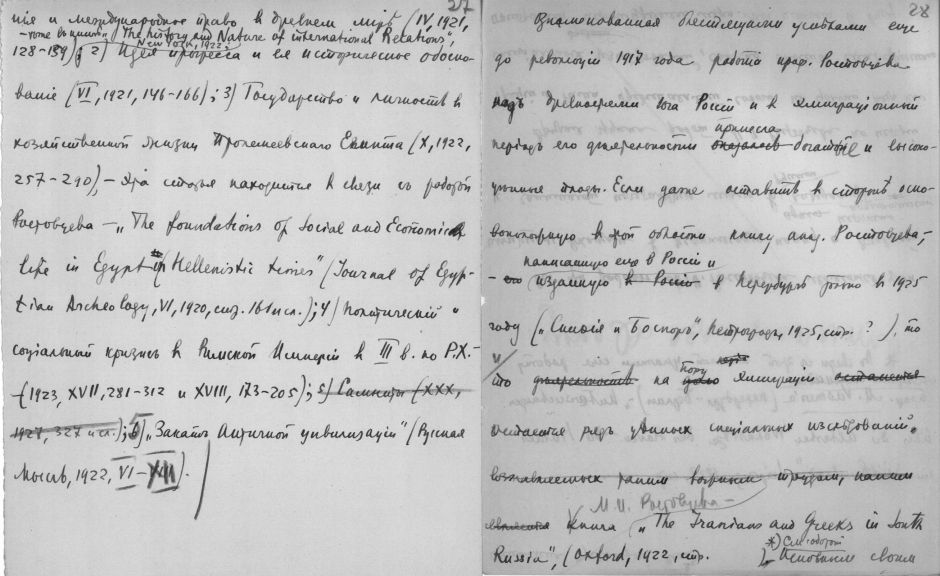 27
ніе и международное право в древнем мірѣ (IV, 1921,
"The history and Nature of international Relations",
New York, 1922;
128-139); 2) Идея прогресса и ея историческое обосно-
ваніе (VI, 1921, 146-166); 3) Государство и личность в
хозяйственной жизни Птолемеевского Египта (X, 1922,
257-290), - эта статья находится в связи с работой
Ростовцева - "The foundations of Social and Economical
life in Egypt in Hellenistic times" (Journal of Egyp-
tian Archeology, VI, 1920, 161 и сл.); 4) Политическій и
соціальный кризис в Римской Имперіи в III в. по Р.Х. -
(1923, XVII, 281-312 и XVIII, 173-205); 5) Самниты (XXX,
1927, 327 и сл.); 6) "Закат Античной цивилизаціи" (Русская
Мысль, 1922, VI-XII).
28
блестящими успехами еще
до революціи 1917 года работа проф. Ростовцева
надъ древностями юга Россіи и в эмиграціонный
принесла
періодъ его деятельности оказалась богатые и высоко-
плоды. Если даже оставить в сторонѣ осно-
вополож­ную в этой области книгу акад. Ростовцева, -
написанную еще в Россіи и
изданную в Россіи в 1925
году ("Скиѳія и Боспоръ", Петроградъ, 1925, стр. ? ), то
пору
что на долю эмиграціи остается
остается рядъ ценных спеціальных изслѣдованій.
трудам,
М. И. Ростовцева -
является Книга "The Iranians and Greeks in South
*) См. оборот
Russia", (Oxford, 1922, стр. Основным своим